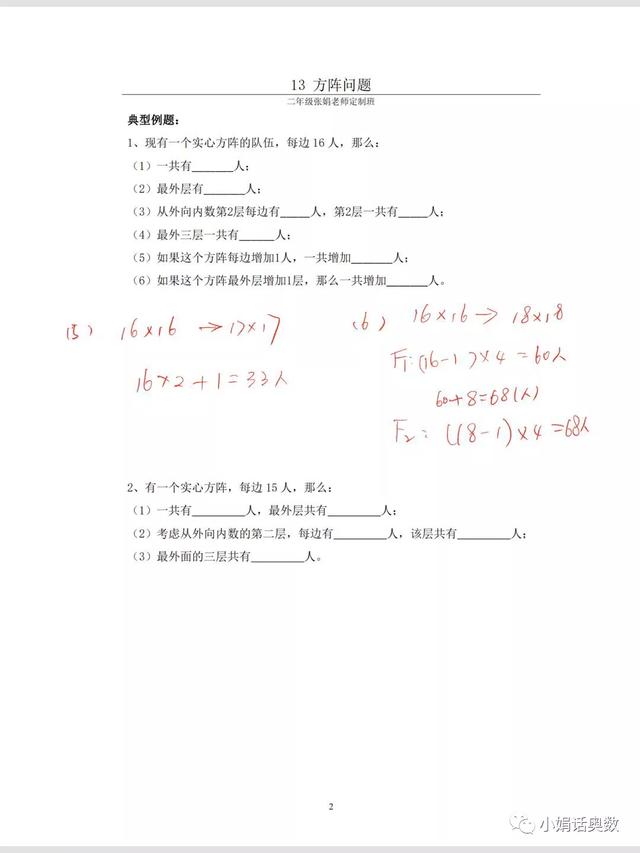 13 方阵问题
二年级张娟老师定制班
典型例题：
1、现有一个实心方阵的队伍，每边 16 人，那么：
（1）一共有______人；
（2）最外层有______人；
（3）从外向内数第2层每边有____人，第2层一共有____人；
（4）最外三层一共有____人；
（5）如果这个方阵每边增加1人，一共增加______人；
（6）如果这个方阵最外层增加1层，那么一共增加______人。
(5) 16×16 → 17×17
16×2+1=33人
(6) 16×16 → 18×18
F1:(16-1)×4=60人
60+8=68(人)
F2: (18-1)×4=68人
2、有一个实心方阵，每边 15 人，那么：
（1）一共有________人，最外层共有________人；
（2）考虑从外向内数的第二层，每边有________人，该层共有________人；
（3）最外面的三层共有________人。
2
小娟话奥数